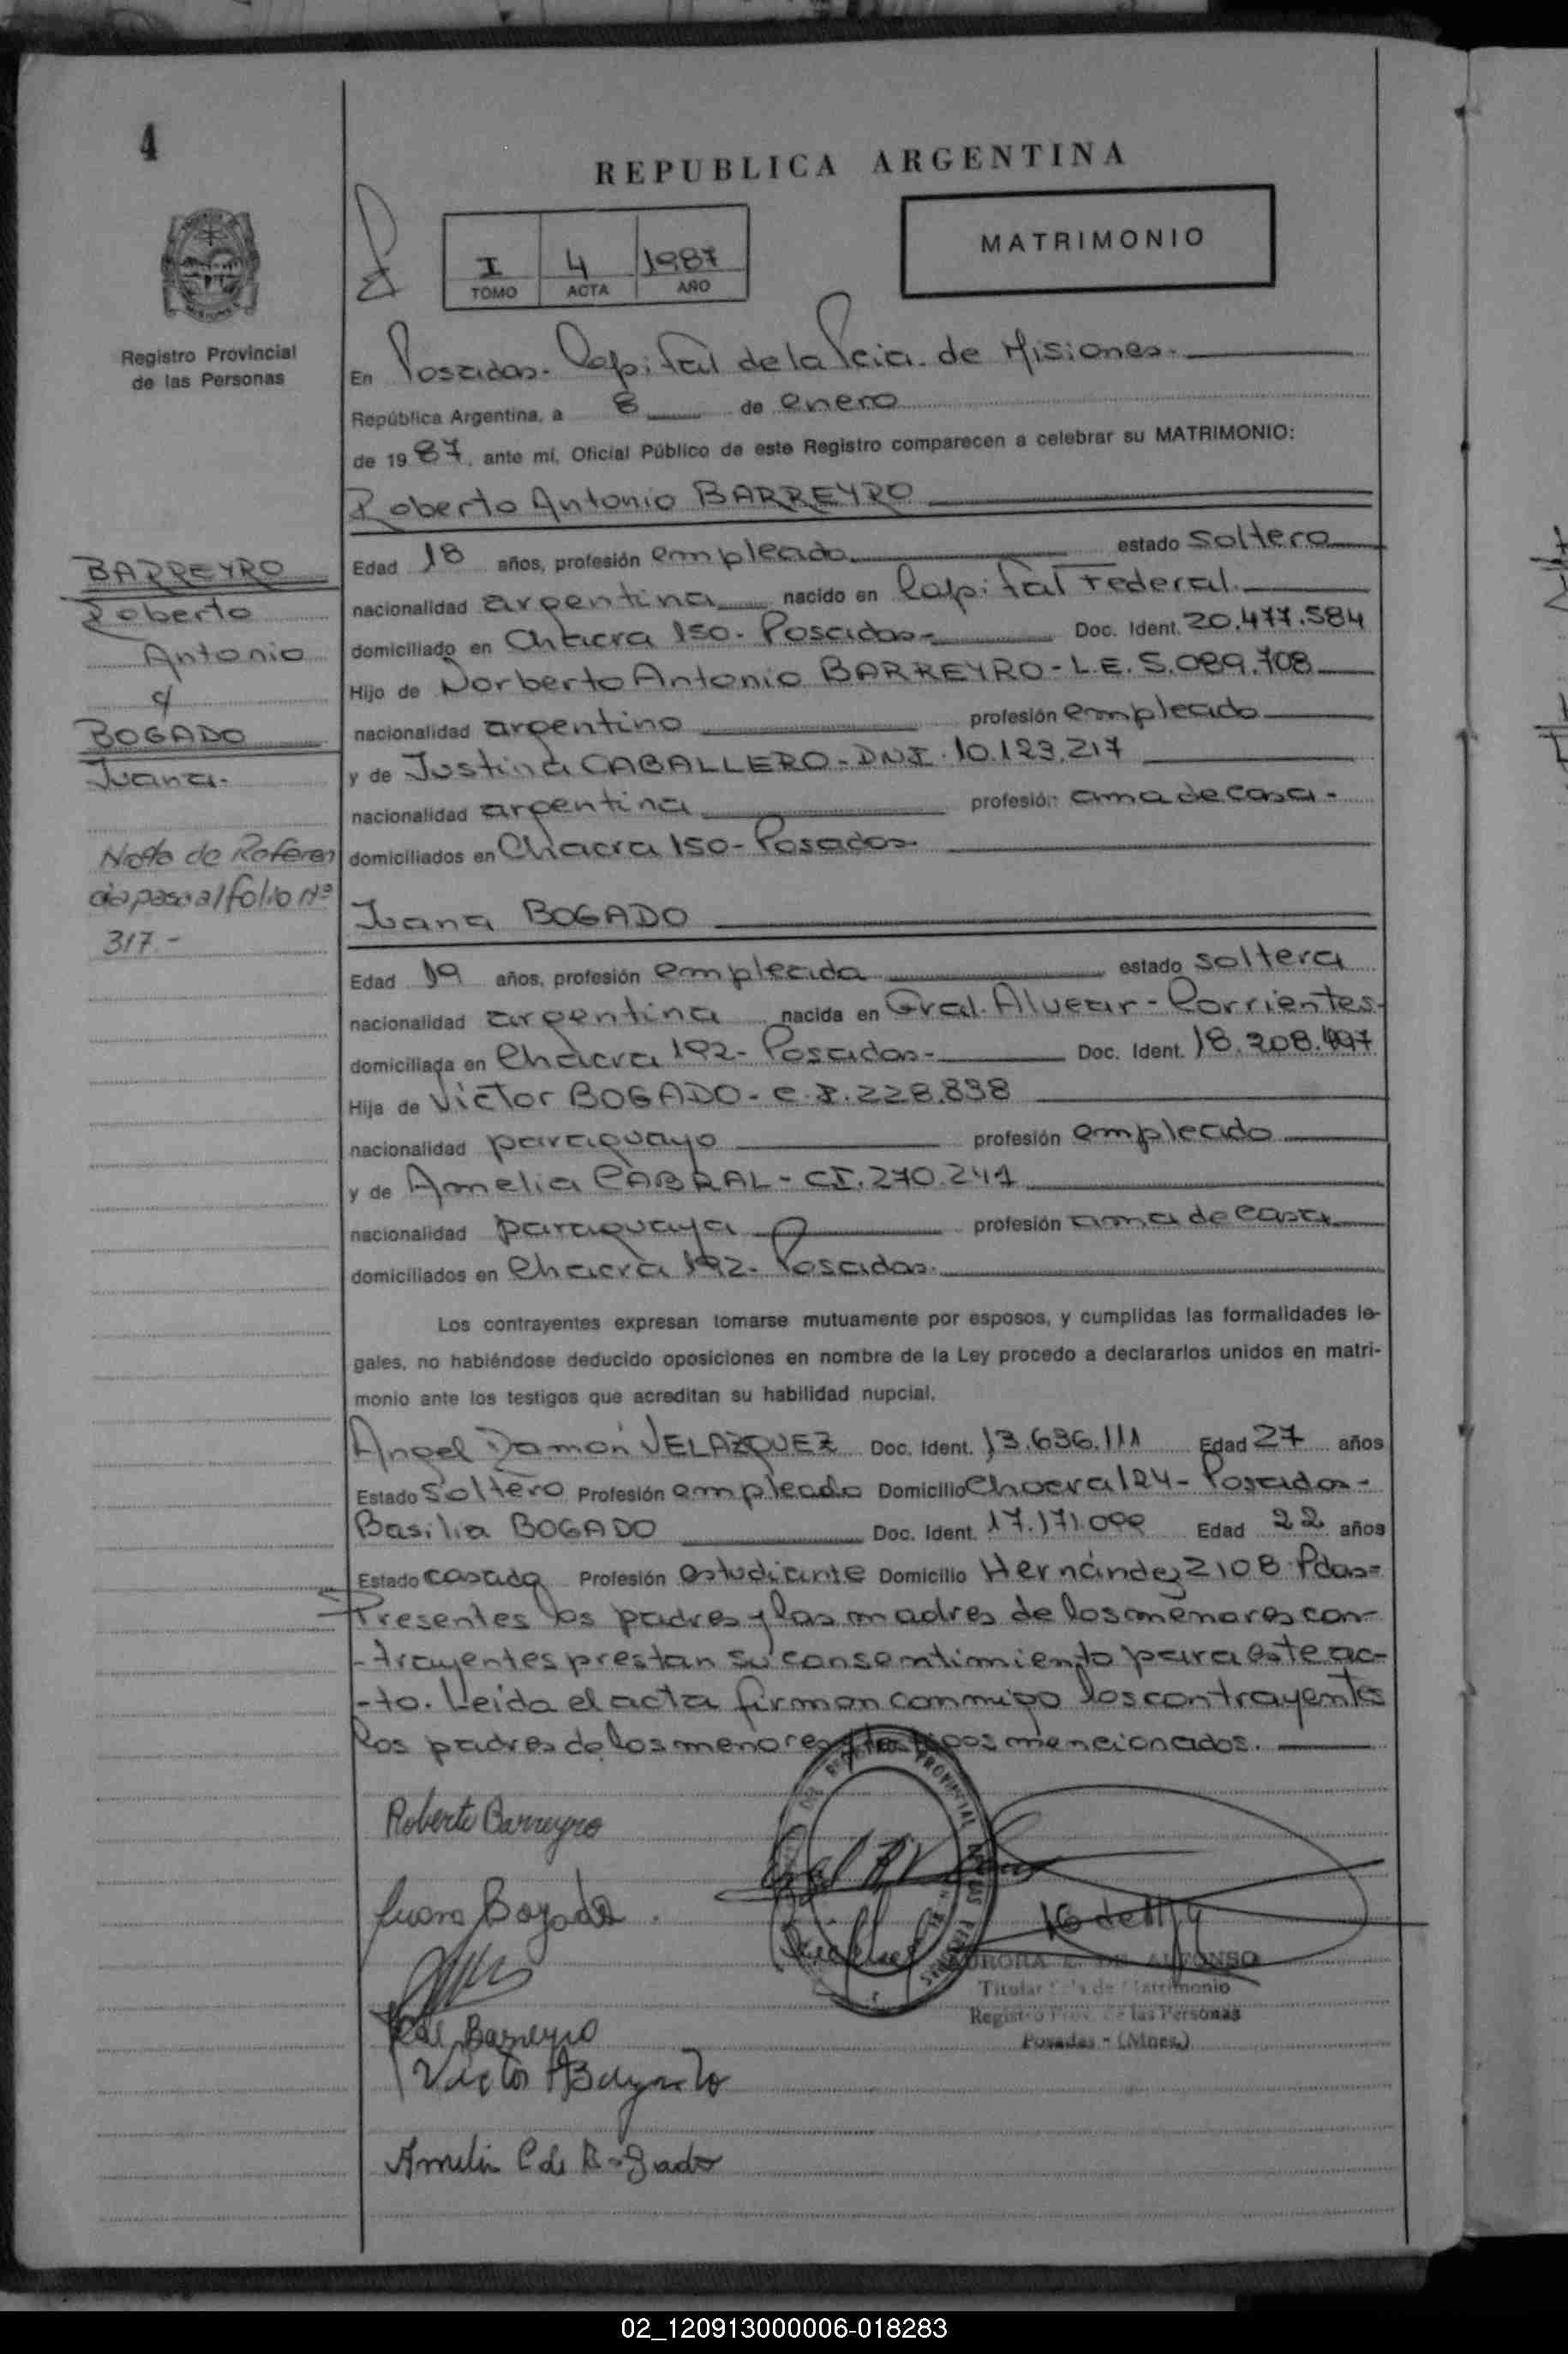 4
REPUBLICA ARGENTINA
MATRIMONIO
I 4 1987
TOMO ACTA AÑO
Registro Provincial
de las Personas
En Posadas. Capital de la Pcia. de Misiones.
República Argentina, a 8 de enero
de 1987, ante mí, Oficial Público de este Registro comparecen a celebrar su MATRIMONIO:
Roberto Antonio BARREYRO
BARREYRO
Roberto
Antonio
c/
BOGADO
Juana.
Nota de Referen
cia pasa al folio Nº
317.-
Edad 18 años, profesión empleado estado soltero
nacionalidad argentina nacido en Capital Federal.
domiciliado en Chacra 150. Posadas- Doc. Ident. 20.477.584
Hijo de Norberto Antonio BARREYRO - L.E. 5.089.708
nacionalidad argentino profesión empleado
y de Justina CABALLERO - DNI. 10.123.217
nacionalidad argentina profesión ama de casa.
domiciliados en Chacra 150- Posadas.
Juana BOGADO
Edad 19 años, profesión empleada estado soltera
nacionalidad argentina nacida en Gral. Alvear - Corrientes.
domiciliada en Chacra 192- Posadas- Doc. Ident. 18.208.
Hija de Victor BOGADO - C.I. 228.838
nacionalidad paraguayo profesión empleado
y de Amelia CABRAL - CI. 270.241
nacionalidad paraguaya profesión ama de casa
domiciliados en Chacra 192- Posadas.
Los contrayentes expresan tomarse mutuamente por esposos, y cumplidas las formalidades le-
gales, no habiéndose deducido oposiciones en nombre de la Ley procedo a declararlos unidos en matri-
monio ante los testigos que acreditan su habilidad nupcial.
Angel Ramón VELAZQUEZ Doc. Ident. 13.636.111 Edad 27 años
Estado Soltero Profesión empleado Domicilio Chacra 124- Posadas-
Basilia BOGADO Doc. Ident. 17.171.099 Edad 22 años
Estado casada Profesión estudiante Domicilio Hernández 2108 Pdas=
Presentes los padres y las madres de los menores con-
-trayentes prestan su consentimiento para este ac-
-to. Leida el acta firman conmigo los contrayentes
los padres de los menores y testigos mencionados.
Roberto Barreyro
Juana Bogado.
REGISTRO PROVINCIAL DE LAS PERSONAS
AURORA E. DE ALFONSO
Titular Sala de Matrimonio
Registro Prov. de las Personas
Posadas - (Mnes.)
de Barreyro
Victor Bogado
Amelia C de Bogado
02_120913000006-018283